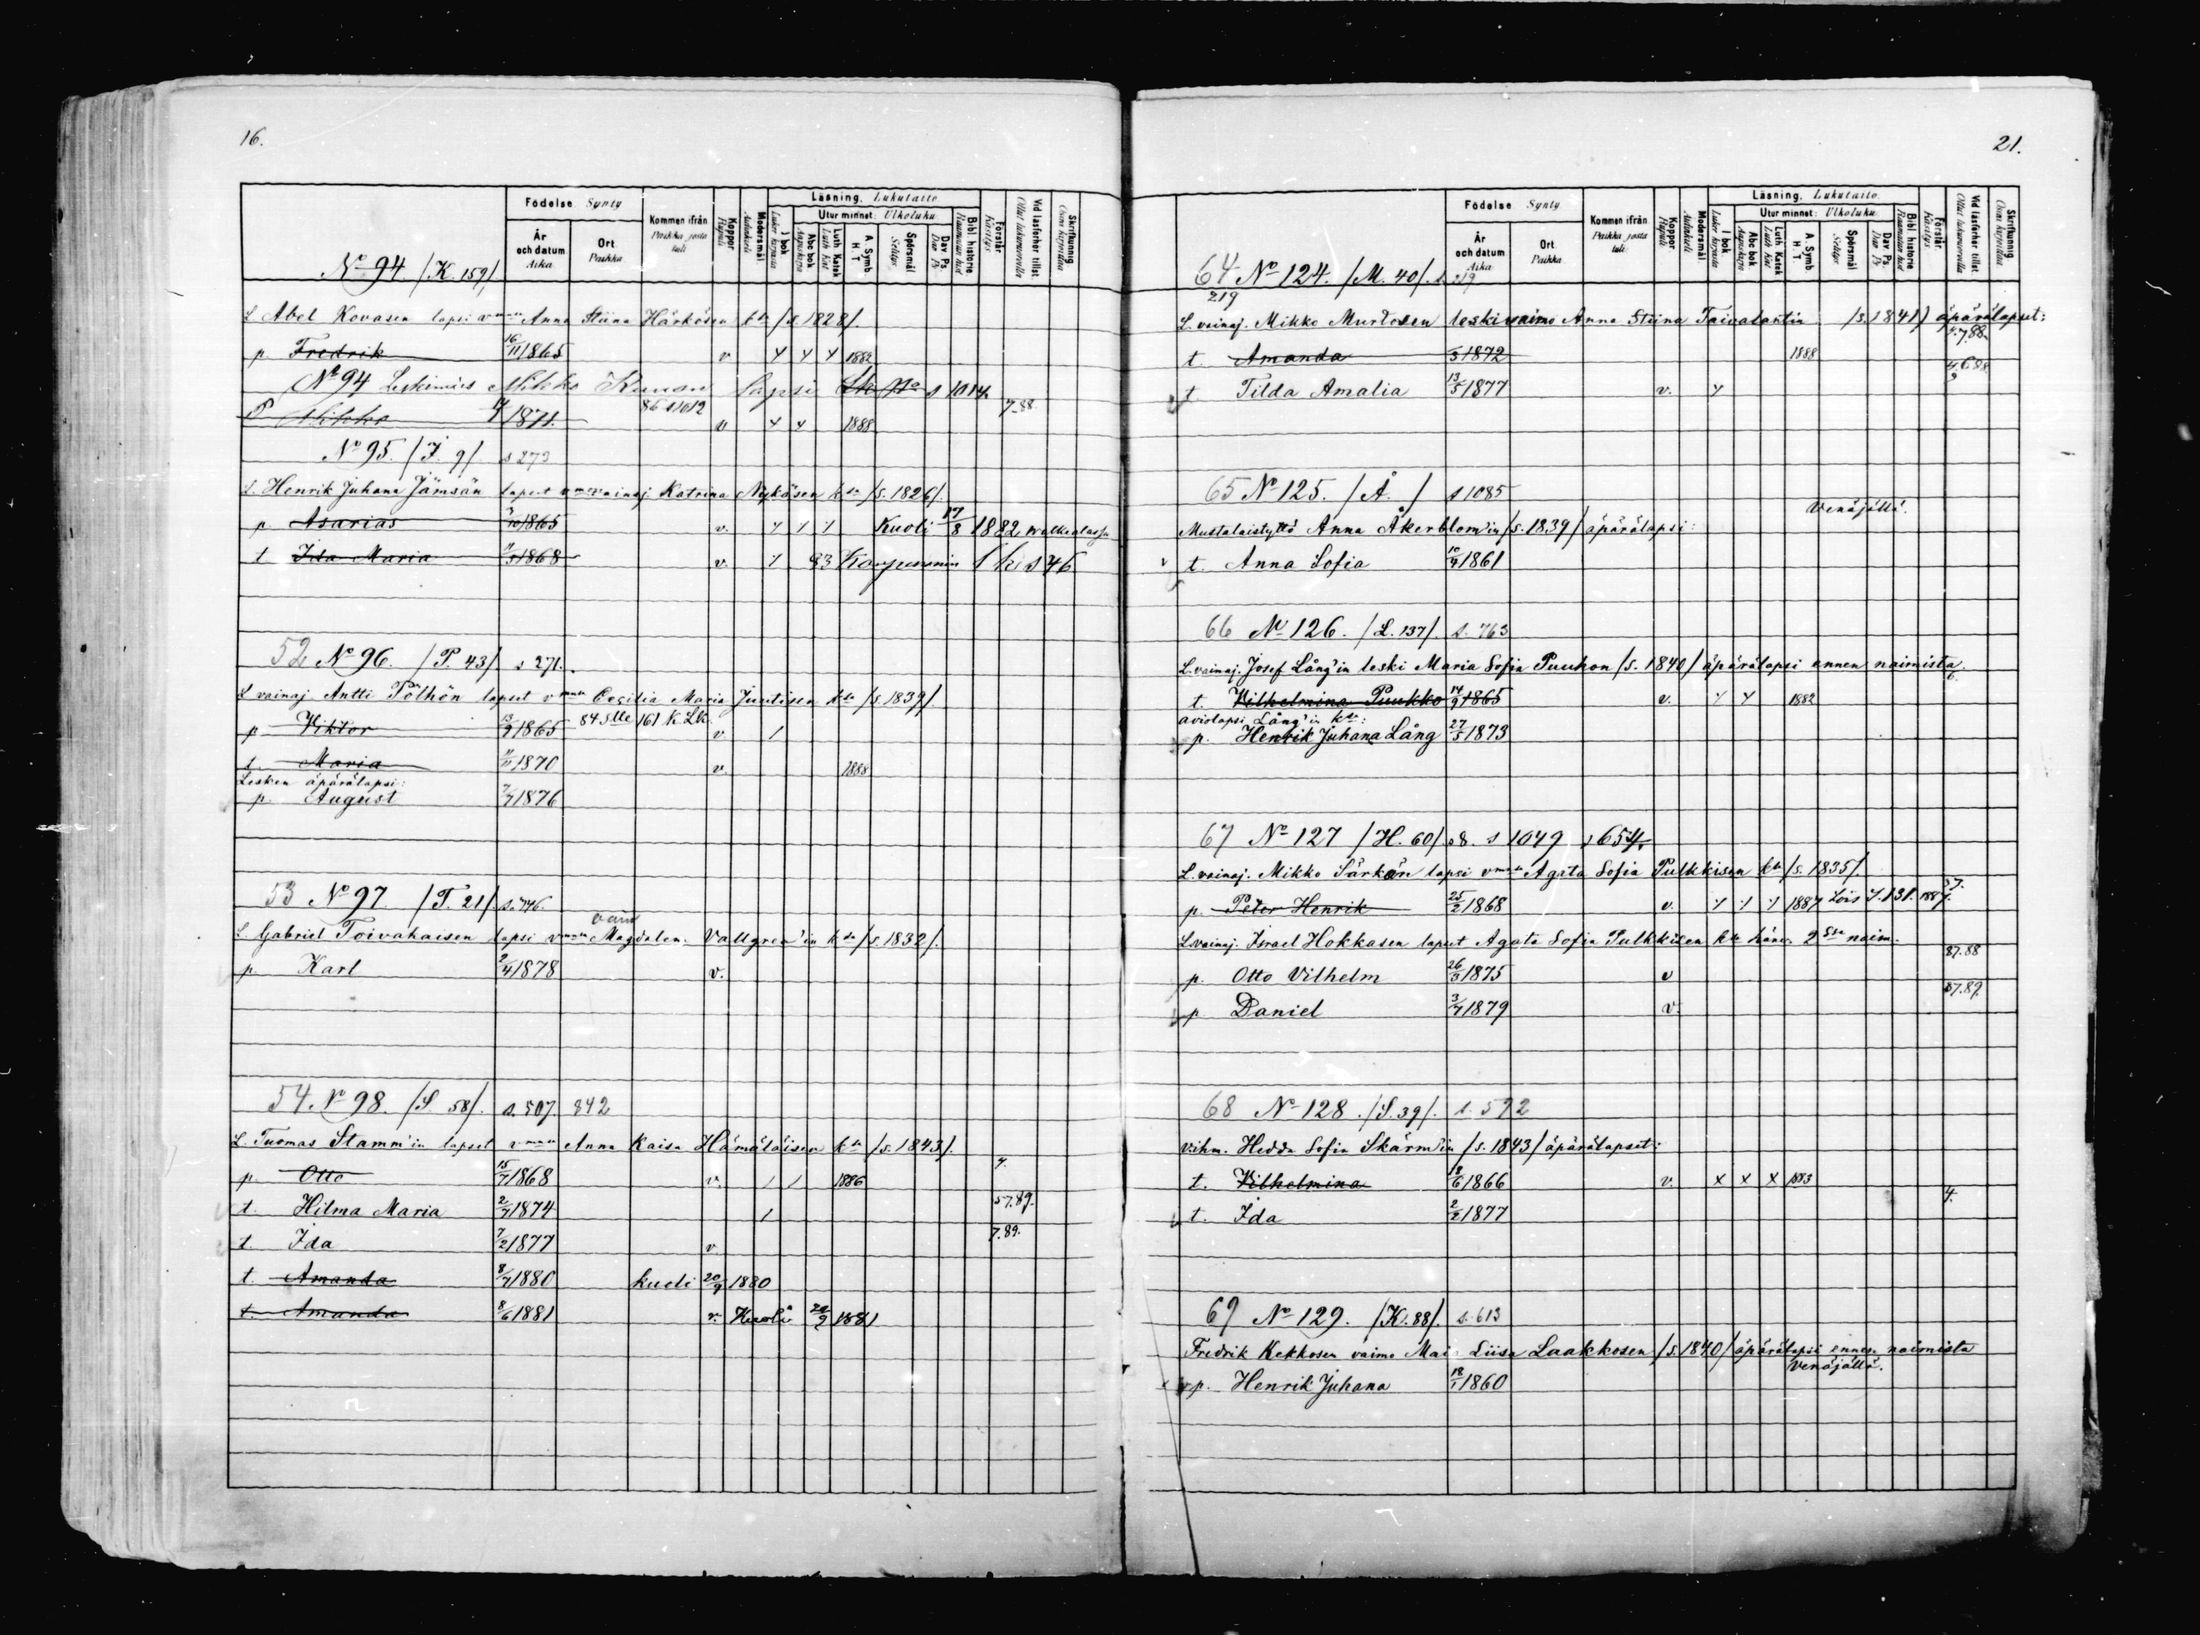 16.
Födelse Synty
År och datum Aika
Ort Paikka
Kommen ifrån Paikka josta tuli
Koppor Rupuli
Modersmål Äidinkieli
Läsning. Lukutaito
I bok Lukee kirjasta
Utur minnet: Ulkoluku
Abc bok Aapiskirja
Luth Katek Luth Kat
A. Symb H. T
Spörsmål Selitys
Dav Ps. Dav Ps
Bibl historie Raamatun hist
Förstår. Käsitys
Vid läsförhör tillst. Ollut lukuvuorolla
Skrifkunnig Osaa kirjoittaa
No 94. /K. 159/
L Abel Kovasen lapsi vmon Anna Stiina Härkösen kta /s. 1828/.
p. Fredrik 16/11 1865 v 1882
No 94 Leskimies Mikko lapsi s 1014
P Mikko 1871. 86 s 1012 v 1888 7.88.
No 95. /J. 9/ s 273
L. Henrik Juhana Jämsän lapset vmon vainaj Katrina Nykäsen kta /s. 1826/.
p. Asarias 1865 v. Kuoli 17/8 1882
t Ida Maria 1868 v. 83 s 46
52 No 96. /P. 43/ s 271.
L vainaj Antti Pölhön lapset vmon Cecilia Maria Juntisen kta /s. 1839/
p Viktor 13/9 1865 84 Slle 161 K.Lk. v
t. Maria 11/11 1870 v. 1888
Lesken äpärälapsi:
p. August 7/7 1876
53 No 97. /T. 21/. s. 746.
L. Gabriel Toivakaisen lapsi vmon Magdalen. Vallgren'in kta /s. 1832/.
p Karl 2/4 1878 v.
54 No 98. /S. 58/. s. 507 842
L. Tuomas Stamm'in lapset vmon Anna Kaisa Hämäläisen kta /s. 1843/.
p Otto 15/7 1868 v. 1886 7.
t. Hilma Maria 2/7 1874 57.89.
t. Ida 7/2 1877 v 7.89.
t. Amanda 8/7 1880 kuoli 20/9 1880
t. Amanda 8/6 1881 v. Kuoli 24/9 1881
21.
Födelse Synty
År och datum Aika
Ort Paikka
Kommen ifrån Paikka josta tuli
Koppor Rupuli
Modersmål Äidinkieli
Läsning. Lukutaito
I bok Lukee kirjasta
Utur minnet: Ulkoluku
Abc bok Aapiskirja
Luth Katek Luth Kat
A. Symb H. T
Spörsmål Selitys
Dav Ps. Dav Ps
Bibl historie Raamatun hist
Förstår. Käsitys
Vid läsförhör tillst. Ollut lukuvuorolla
Skrifkunnig Osaa kirjoittaa
64 No 124. /M. 40/. s 219
219
L. vainaj. Mikko Murtosen leskivaimo Anna Stiina Taivalantin /s. 1841/ äpärälapset:
t Amanda 1872 1888 7.88.
t Tilda Amalia 13/5 1877 v.
65 No 125. /Å. / s 1085
Venäjällä.
Mustalaistyttö Anna Åkerblom'in /s. 1839/ äpärälapsi:
v t. Anna Sofia 10/9 1861
66 No 126. /L. 137/. s. 763
L. vainaj. Josef Lång'in leski Maria Sofia Puukon /s. 1840/ äpärälapsi ennen naimista
t. Vilhelmina Puukko 14/9 1865 v. 1882 6.
aviolapsi Lång'in kta:
p. Henrik Juhana Lång 27/5 1873
67 No 127 /H. 60/ s 8. s 1049 s 654
L. vainaj. Mikko Särkän lapsi vmon Agata Sofia Pulkkisen kta /s. 1835/
p. Peter Henrik 25/2 1868 v. 1887 Lois S. 131. 1887
L. vainaj. Israel Hokkasen lapset Agata Sofia Pulkkisen kta häne. 2ssa naim.
p. Otto Vilhelm 26/3 1875 v 87.88
p Daniel 3/7 1879 v. 57.89.
68 No 128. /S. 39/. s. 592
vihm. Hedda Sofia Skärm'in /s. 1843/ äpärälapset:
t. Vilhelmina 18/6 1866 v. x x x 1883
t. Ida 2/2 1877 4.
69 No 129. /K. 88/. s. 613
Fredrik Kekkosen vaimo Mai Liisa Laakkosen /s. 1840/ äpärälapsi ennen naimista
Venäjällä.
v p. Henrik Juhana 18/1 1860